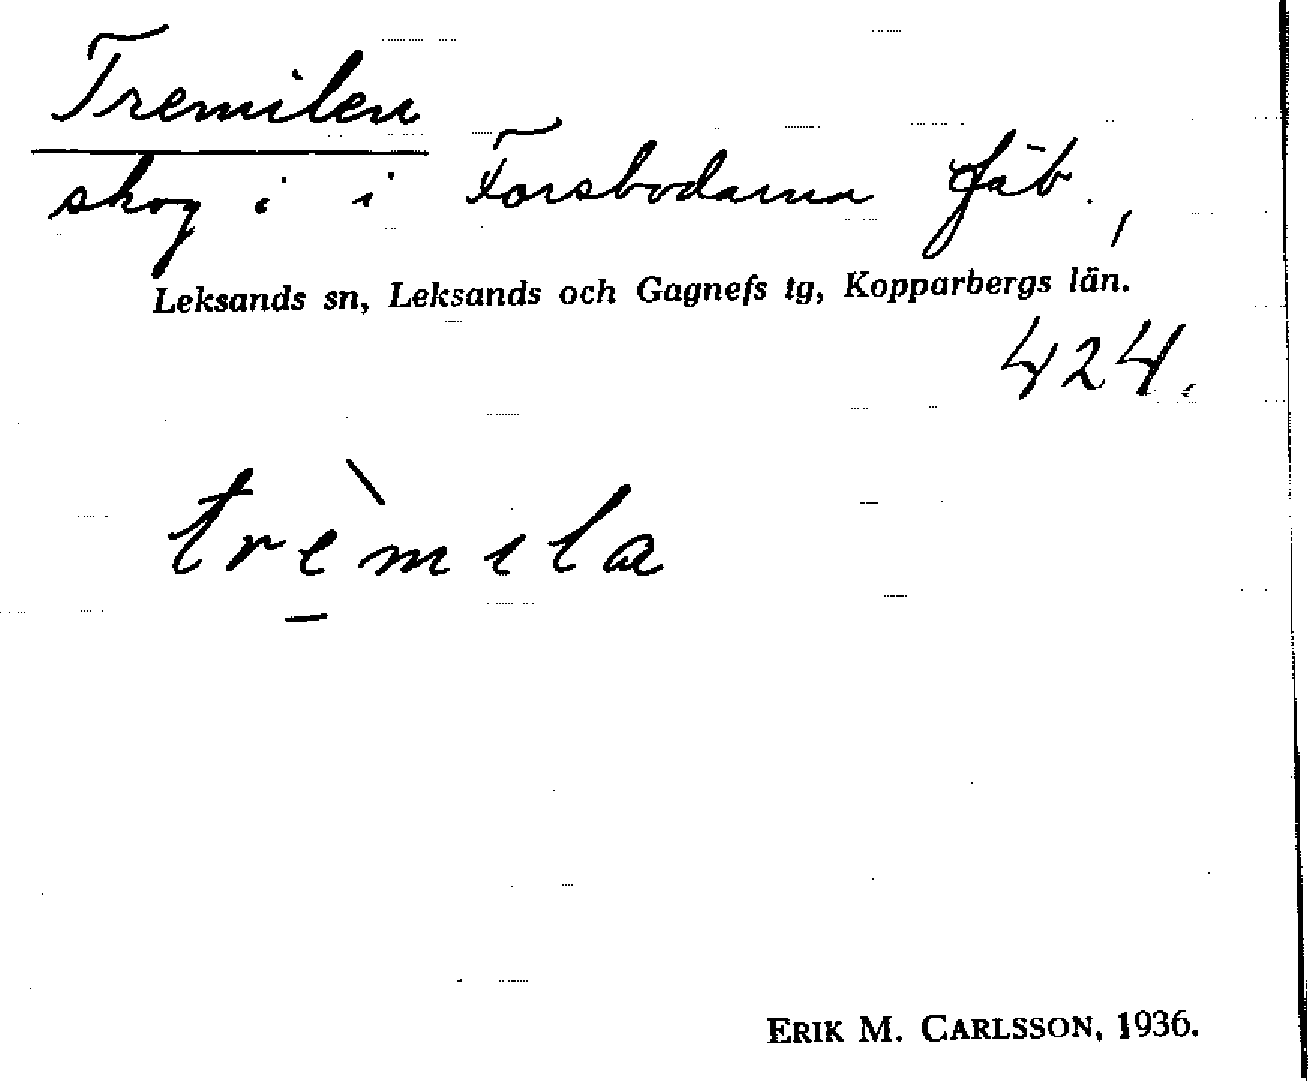 Tremilen
skog i i Forsbodarna fäb.,
Leksands sn, Leksands och Gagnefs tg, Kopparbergs län.
424.
trèmıla
ERIK M. CARLSSON, 1936.